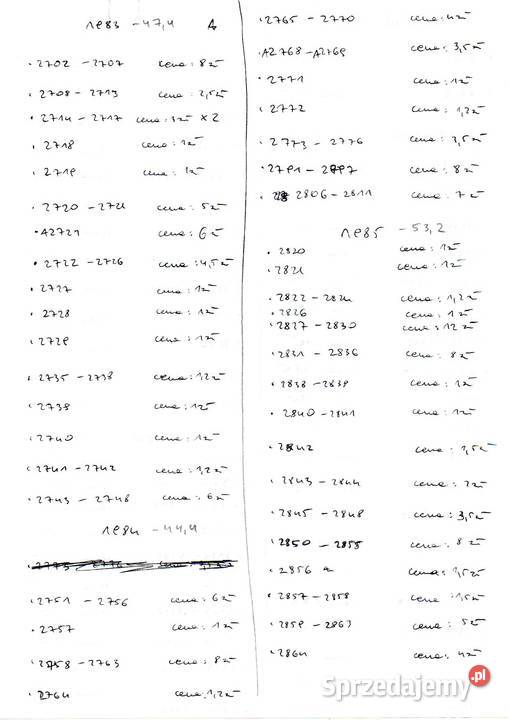 1983 - 47,4 A
• 2702 - 2707 cena: 8zł
• 2708 - 2713 cena: 2,5zł
• 2714 - 2717 cena: 3zł x2
• 2718 cena: 1zł
• 2719 cena: 1zł
• 2720 - 2721 cena: 5zł
• A2721 cena: 6zł
• 2722 - 2726 cena: 4,5zł
• 2727 cena: 1zł
• 2728 cena: 1zł
• 2729 cena: 1zł
• 2735 - 2738 cena: 12zł
• 2739 cena: 1zł
• 2740 cena: 1zł
• 2741 - 2742 cena: 1,2zł
• 2743 - 2748 cena: 6zł
1984 - 44,4
• 2751 - 2756 cena: 6zł
• 2757 cena: 1zł
• 2758 - 2763 cena: 8zł
• 2764 cena: 1,2zł
• 2765 - 2770 cena: 4zł
• A2768 - A2769 cena: 3,5zł
• 2771 cena: 1zł
• 2772 cena: 1,2zł
• 2773 - 2776 cena: 3,5zł
• 2791 - 2797 cena: 8zł
• 2806 - 2811 cena: 7zł
1985 - 53,2
• 2820 cena: 1zł
• 2821 cena: 1zł
• 2822 - 2824 cena: 1,2zł
• 2826 cena: 1zł
• 2827 - 2830 cena: 12zł
• 2831 - 2836 cena: 8zł
• 2838 - 2839 cena: 1zł
• 2840 - 2841 cena: 1zł
• 2842 cena: 1,5zł
• 2843 - 2844 cena: 2zł
• 2845 - 2848 cena: 3,5zł
• 2850 - 2855 cena: 8zł
• 2856 a cena: 1,5zł
• 2857 - 2858 cena: 1,5zł
• 2859 - 2863 cena: 5zł
• 2864 cena: 4zł
Sprzedajemy.pl